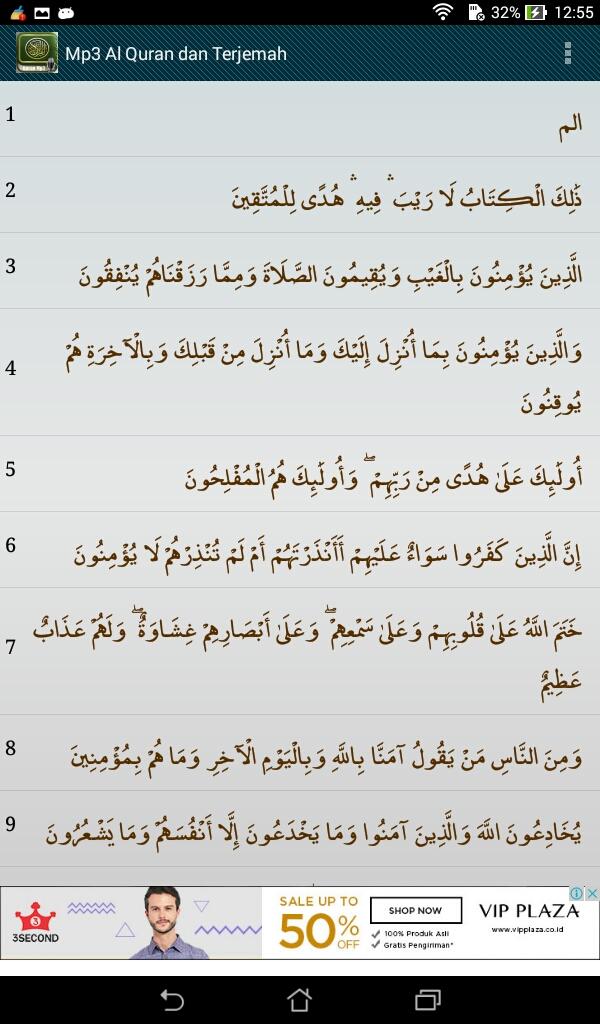 32% 12:55
Mp3 Al Quran dan Terjemah
1
الم
2
ذَٰلِكَ الْكِتَابُ لَا رَيْبَ ۛ فِيهِ ۛ هُدًى لِلْمُتَّقِينَ
3
الَّذِينَ يُؤْمِنُونَ بِالْغَيْبِ وَيُقِيمُونَ الصَّلَاةَ وَمِمَّا رَزَقْنَاهُمْ يُنْفِقُونَ
4
وَالَّذِينَ يُؤْمِنُونَ بِمَا أُنْزِلَ إِلَيْكَ وَمَا أُنْزِلَ مِنْ قَبْلِكَ وَبِالْآخِرَةِ هُمْ
يُوقِنُونَ
5
أُولَٰئِكَ عَلَىٰ هُدًى مِنْ رَبِّهِمْ ۖ وَأُولَٰئِكَ هُمُ الْمُفْلِحُونَ
6
إِنَّ الَّذِينَ كَفَرُوا سَوَاءٌ عَلَيْهِمْ أَأَنْذَرْتَهُمْ أَمْ لَمْ تُنْذِرْهُمْ لَا يُؤْمِنُونَ
7
خَتَمَ اللَّهُ عَلَىٰ قُلُوبِهِمْ وَعَلَىٰ سَمْعِهِمْ ۖ وَعَلَىٰ أَبْصَارِهِمْ غِشَاوَةٌ ۖ وَلَهُمْ عَذَابٌ
عَظِيمٌ
8
وَمِنَ النَّاسِ مَنْ يَقُولُ آمَنَّا بِاللَّهِ وَبِالْيَوْمِ الْآخِرِ وَمَا هُمْ بِمُؤْمِنِينَ
9
يُخَادِعُونَ اللَّهَ وَالَّذِينَ آمَنُوا وَمَا يَخْدَعُونَ إِلَّا أَنْفُسَهُمْ وَمَا يَشْعُرُونَ
3
3SECOND
SALE UP TO
50% OFF
SHOP NOW
100% Produk Asli
Gratis Pengiriman*
VIP PLAZA
www.vipplaza.co.id